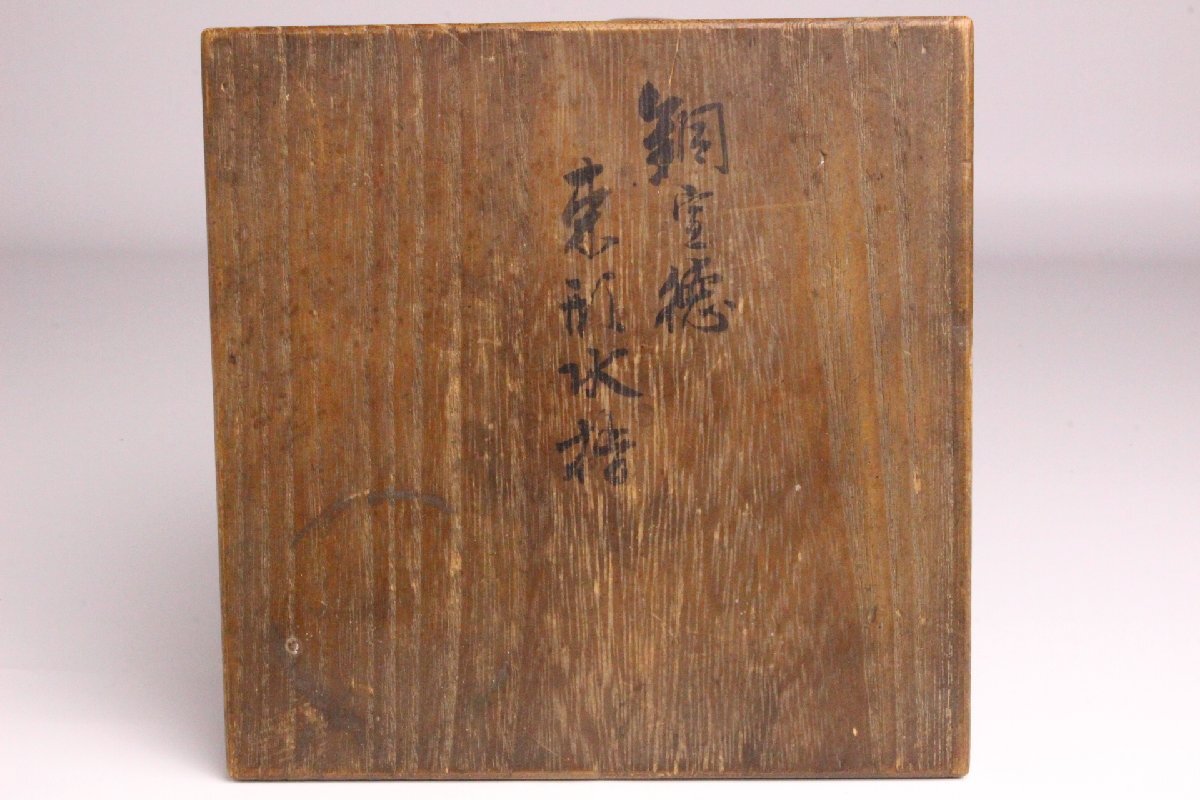 銅宣徳
棗形水指